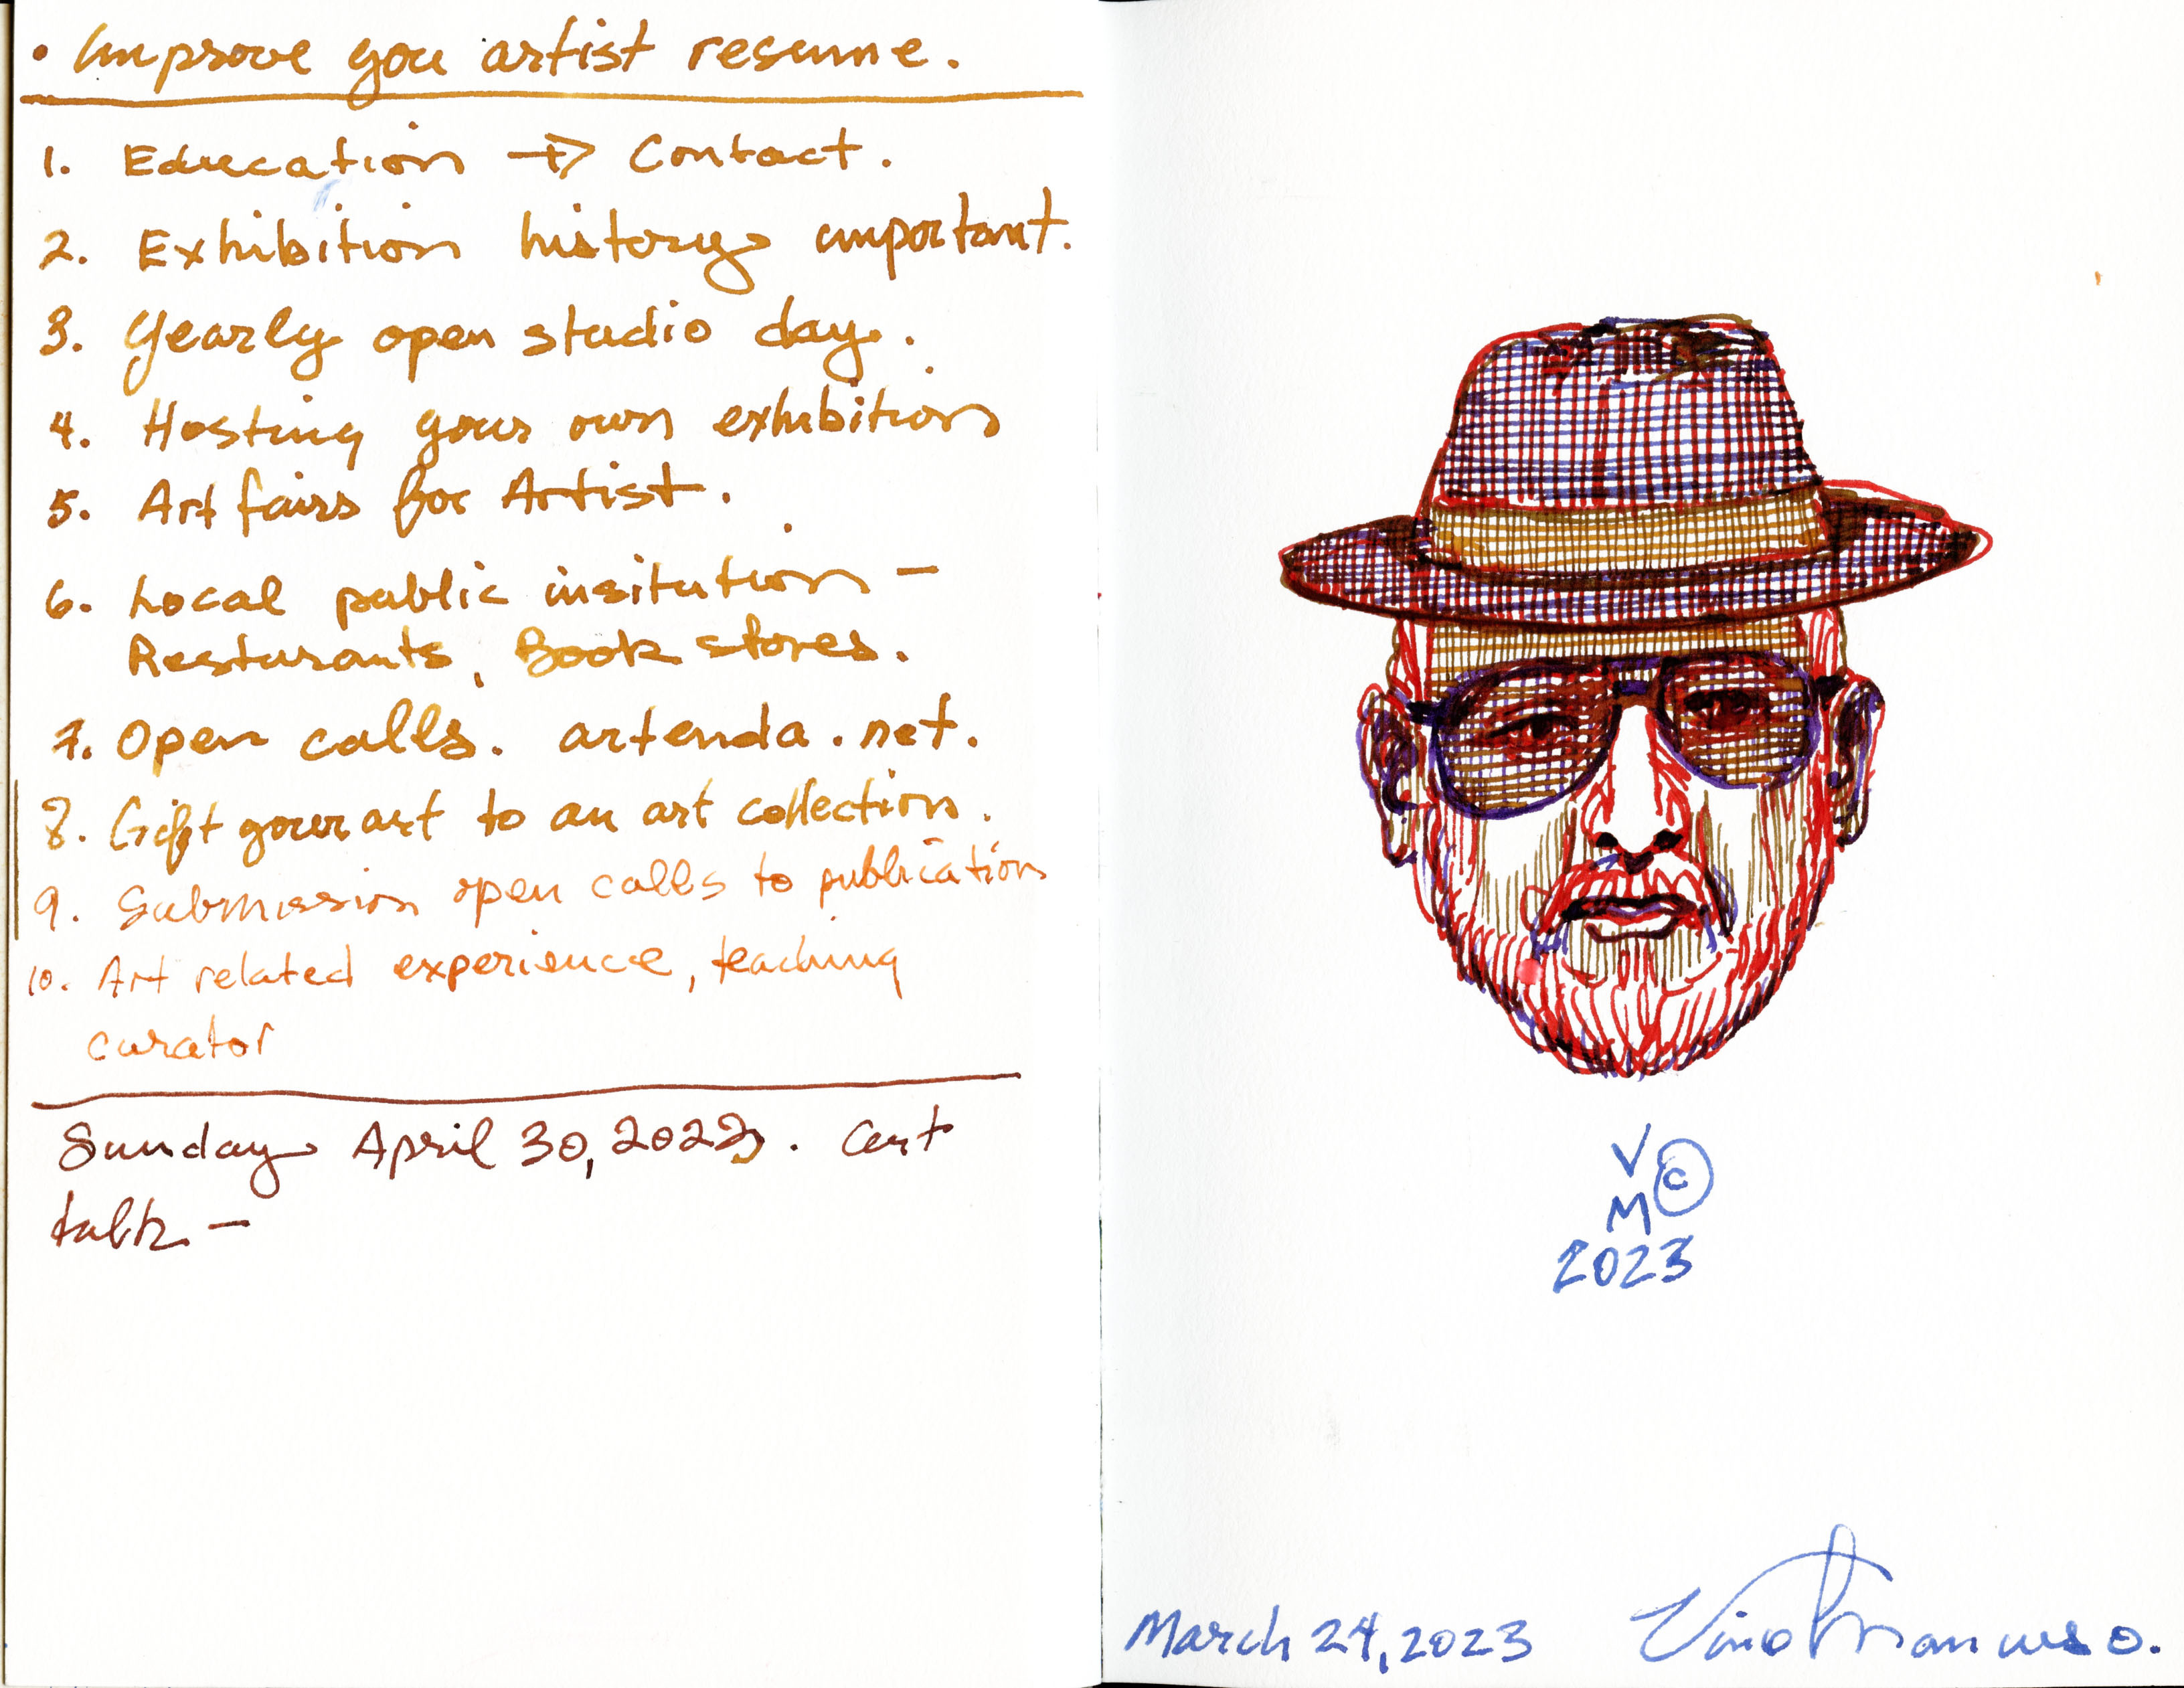 • Improve you artist resume.
1. Education → Contact.
2. Exhibition history important.
3. Yearly open studio day.
4. Hosting your own exhibition
5. Art fairs for Artist.
6. Local public insitution –
Resturants, Book stores.
7. Open calls. artenda.net.
8. Gift your art to an art collection.
9. Submission open calls to publication
10. Art related experience, teaching
curator
Sunday April 30, 2023. art
talk –
V ©
M
2023
March 24, 2023 Vino Mancuso.